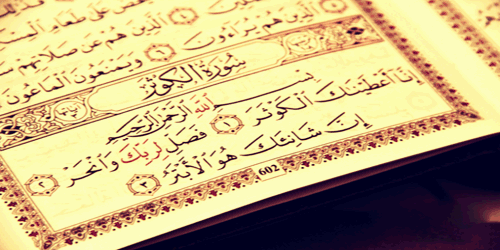 عَلَىٰ طَعَامِ
ٱلَّذِينَ هُمْ عَن صَلَاتِهِمْ
ٱلَّذِينَ هُمْ يُرَآءُونَ ٦ وَيَمْنَعُونَ ٱلْمَاعُونَ
سُورَةُ الْكَوْثَرِ
بِسْمِ ٱللَّهِ ٱلرَّحْمَٰنِ ٱلرَّحِيمِ
إِنَّآ أَعْطَيْنَٰكَ ٱلْكَوْثَرَ ١ فَصَلِّ لِرَبِّكَ وَٱنْحَرْ ٢
إِنَّ شَانِئَكَ هُوَ ٱلْأَبْتَرُ ٣
602